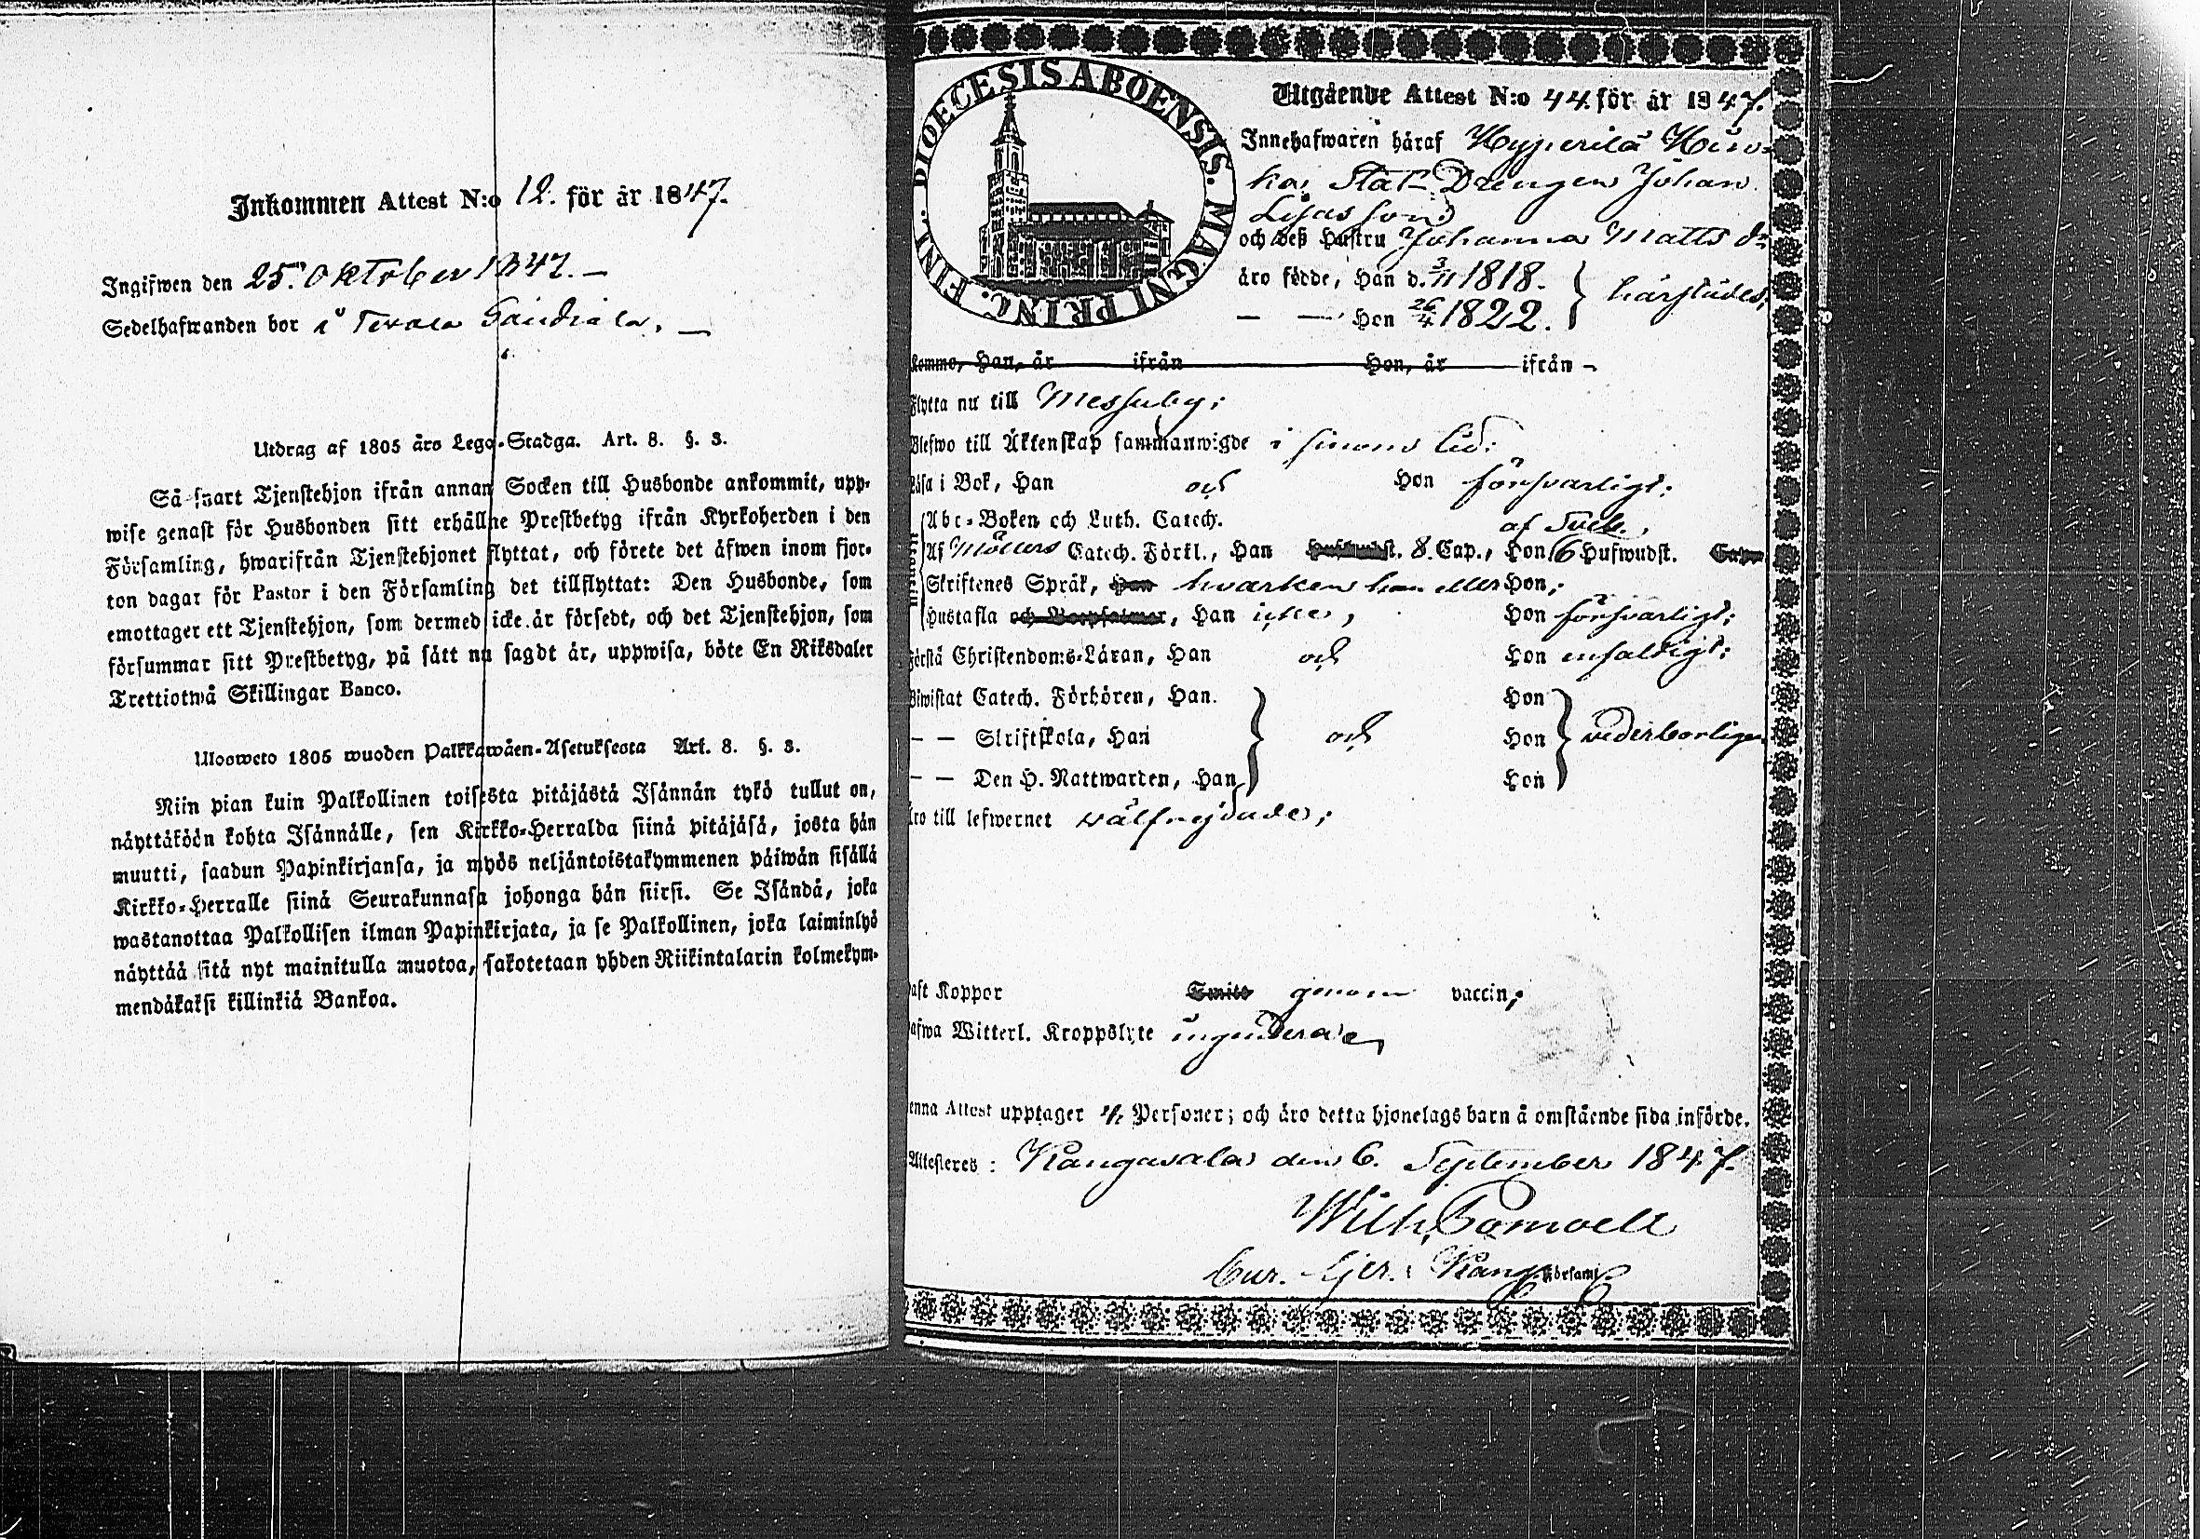 Inkommen Attest N:o 12. för år 1847.
Ingifwen den 25. Oktober 1847. —
Sedelhafwanden bor i
Utdrag af 1805 års Lego-Stadga. Art. 8. §. 3.
Så snart Tjenstehjon ifrån annan Socken till Husbonde ankommit, upp-
wise genast för Husbonden sitt erhållne Prestbetyg ifrån Kyrkoherden i den
Församling, hwarifrån Tjenstehjonet flyttat, och förete det äfwen inom fjor-
ton dagar för Pastor i den Församling det tillflyttat: Den Husbonde, som
emottager ett Tjenstehjon, som dermed icke är försedt, och det Tjenstehjon, som
försummar sitt Prestbetyg, på sätt nu sagdt är, uppwisa, böte En Riksdaler
Trettiotwå Skillingar Banco.
Ulosweto 1805 wuoden Palkkawäen-Asetuksesta Art. 8. §. 3.
Niin pian kuin Palkollinen toisesta pitäjästä Isännän tykö tullut on,
näyttäköön kohta Isännälle, sen Kirkko-Herralda siinä pitäjäsä, josta hän
muutti, saadun Papinkirjansa, ja myös neljäntoistakymmenen päiwän sisällä
Kirkko-Herralle siinä Seurakunnasa johonga hän siirsi. Se Isändä, joka
wastanottaa Palkollisen ilman Papinkirjata, ja se Palkollinen, joka laiminlyö
näyttää sitä nyt mainitulla muotoa, sakotetaan yhden Riikintalarin kolmekym-
mendäkaksi killinkiä Bankoa.
DIOECESIS ABOENSIS. MAGNI PRINC. FINL.
Utgående Attest N:o 44. för år 1847.
Innehafwaren häraf Hyperilä
Drengen Johan
och deß Hustru Johanna Matts dr
äro födde, Han d. 3/11 1818. härstädes,
— — Hon 26/4 1822.
Komme, Han, år ifrån Hon, år ifrån -
Flytta nu till Messuby;
Blefwo till Äktenskap sammanwigde i sinom tid:
Läsa i Bok, Han och Hon försvarligt;
Abc-Boken och Luth. Catech.
Af Möllers Catech. Förkl., Han 8. Cap., Hon 6 Hufwudst.
Skriftenes Språk, hwarken han eller Hon;
Hustafla och , Han icke, Hon försvarligt;
Förstå Christendoms-Läran, Han och Hon enfaldigt;
Biwistat Catech. Förhören, Han. Hon
— — Skriftskola, Han och Hon vederborligen
— — Den H. Nattwarden, Han Hon
Äro till lefwernet wälfrejdade;
Haft Koppor genom vaccin;
Hafwa Witterl. Kroppslyte ingendera,
Denna Attest upptager Personer; och äro detta hjonelags barn å omstående sida införde.
Attesteres: Kangasala den 6. September 1847.
Wilh.
Kang Församl.